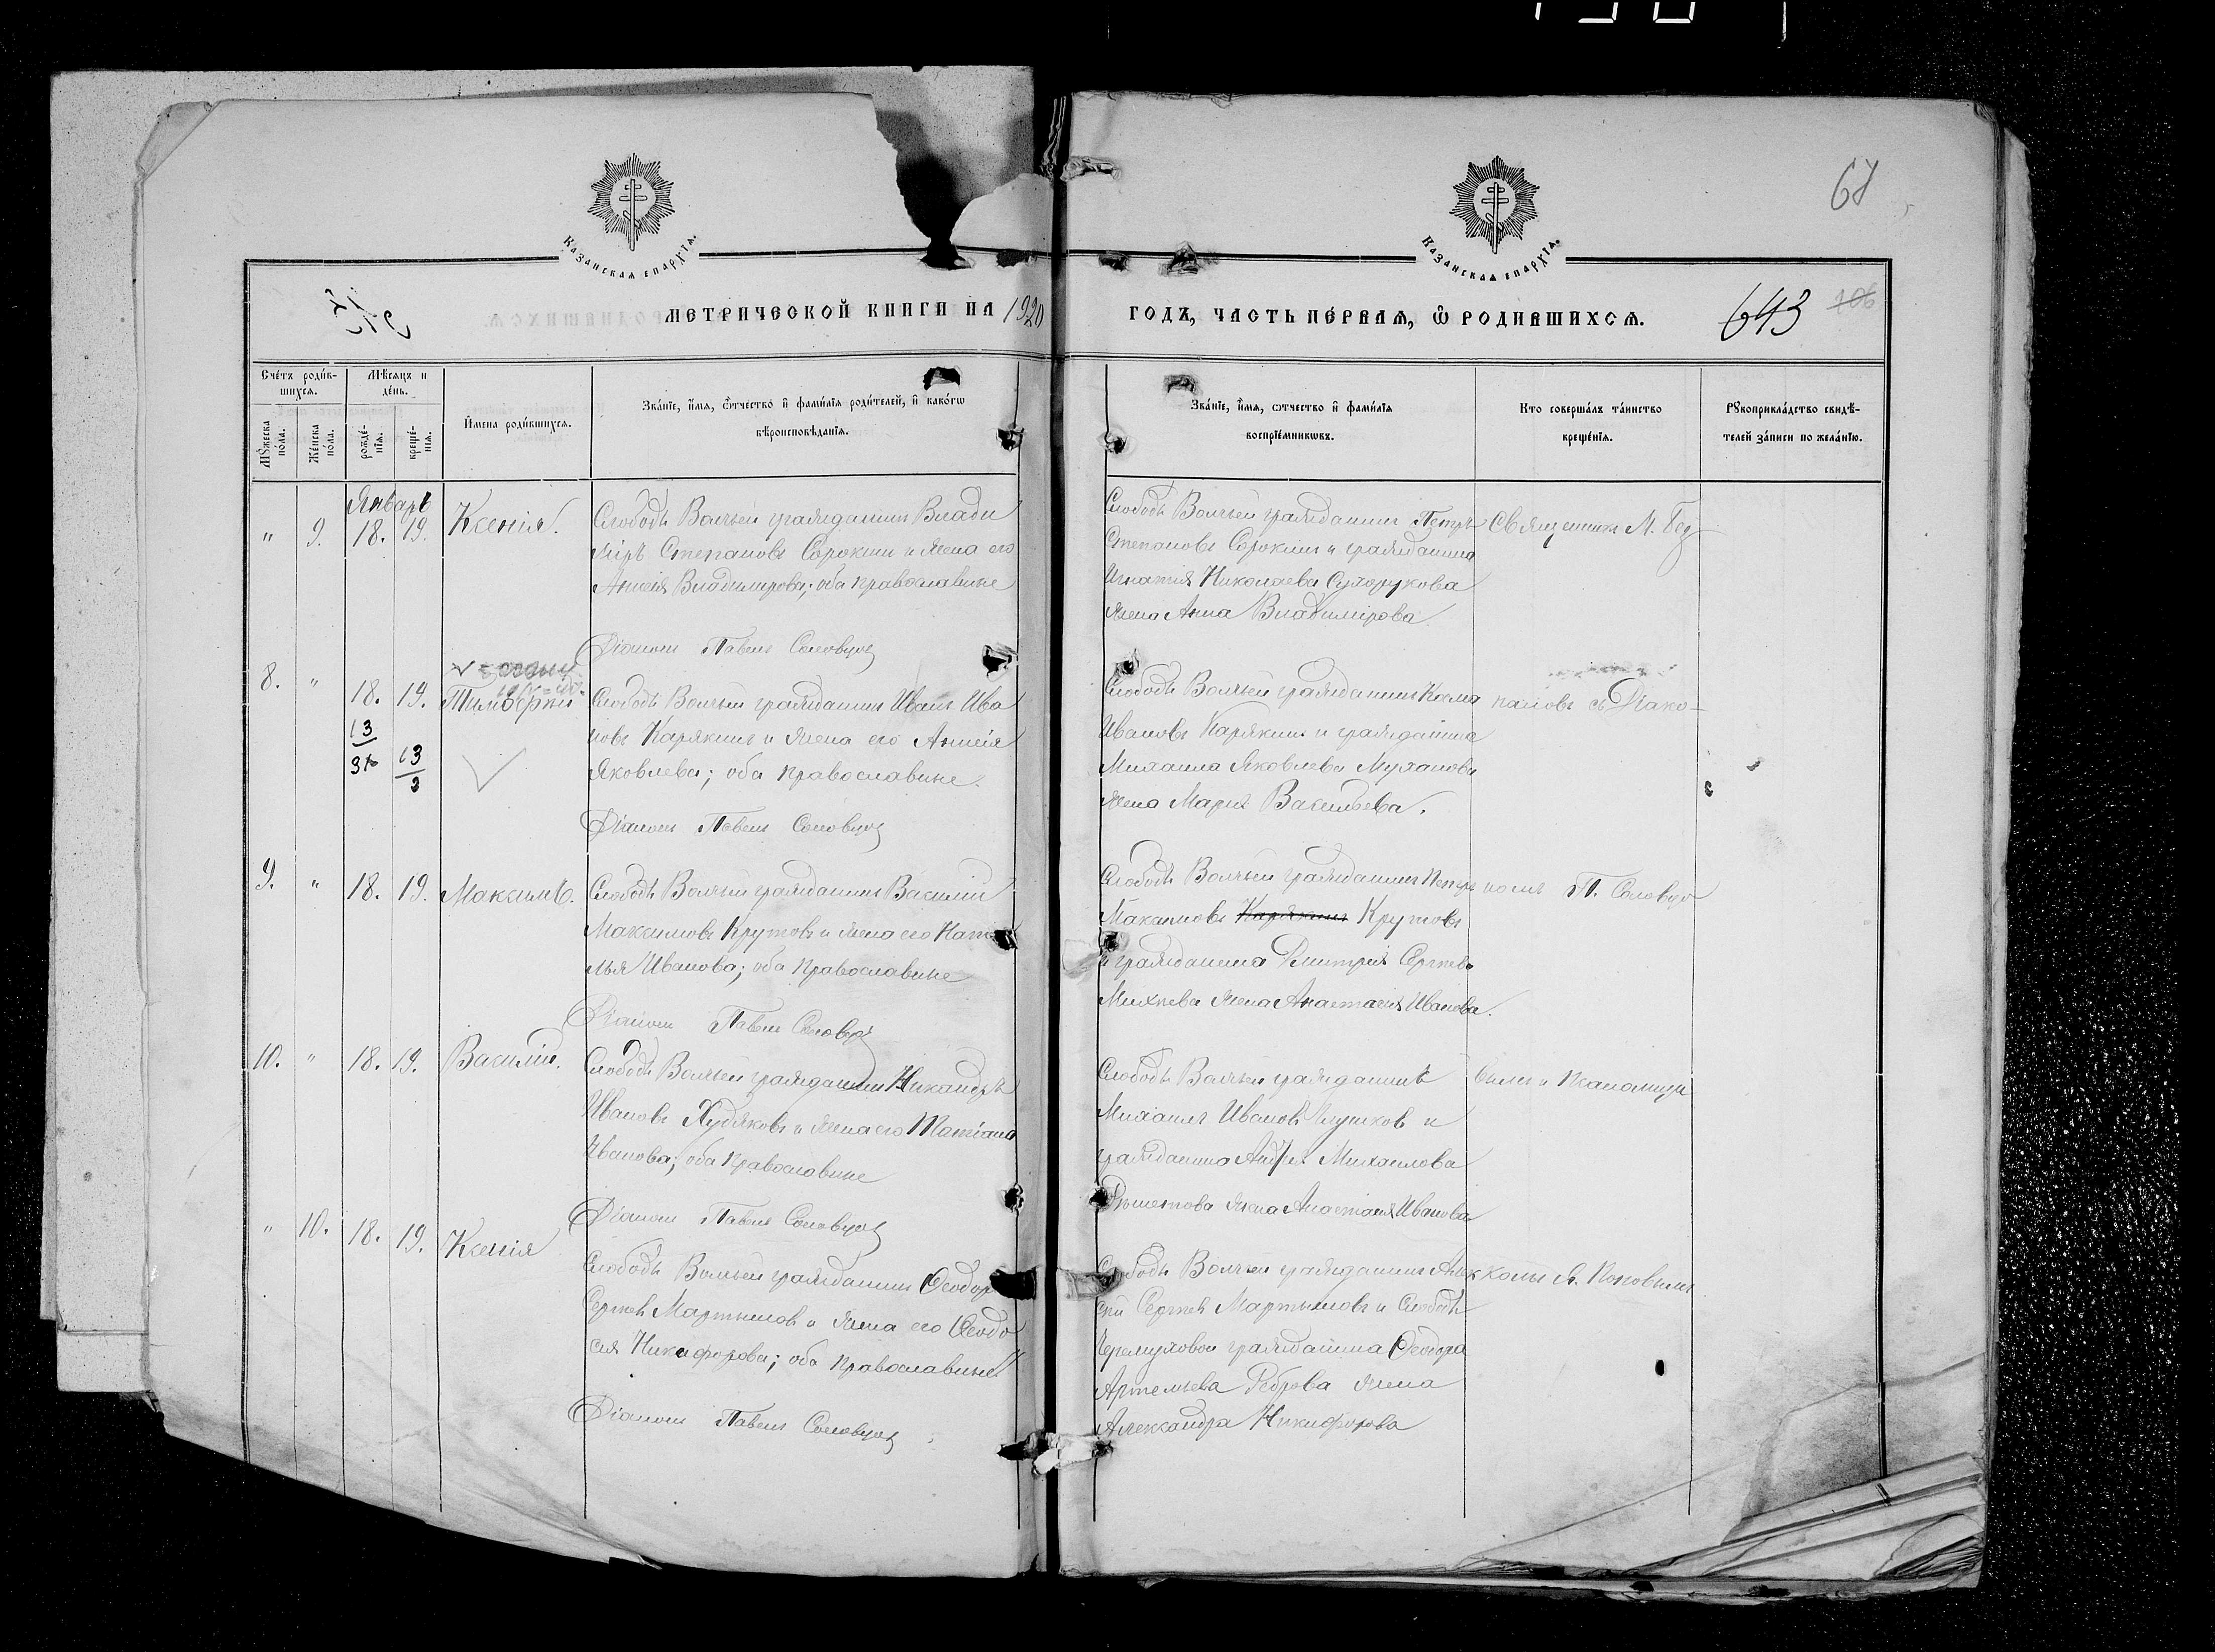 Казанская епархїя.
Казанская епархїя.
68
МЕТРИЧЕСКОЙ КНИГИ НА 1920
ГОДЪ, ЧАСТЬ ПЕРВАЯ, Ѿ РОДИВШИХСЯ.
643
106
Счётъ роди́в-
шихся.
Мѣсяцъ и
де́нь.
Мꙋ́жеска
по́ла.
Же́нска
по́ла.
рожде́-
нїя.
креще́-
нїя.
И́мена роди́вшихся.
Зва́нїе, и́мя, ѻ́тчество и фами́лїя роди́телей, и како́гѡ
вѣроисповѣ́данїя.
Зва́нїе, и́мя, ѻтчество и фами́лїя
воспрїе́мникѡвъ.
Кто соверша́лъ та́инство
креще́нїя.
Рꙋкоприкла́дство свидѣ́-
телей за́писи по жела́нїю.
Январь
" 9. 18. 19. Ксенія.
Слободы Волчьей гражданинъ Влади
міръ Степановъ Сорокин и жена его
Анисія Владимірова; оба православные
Діаконъ Павелъ Соловцов
Слободы Волчьей гражданинъ Петръ
Степановъ Сорокинъ и гражданина
Игнатія Николаева Сухорукова
жена Анна Владимірова
Священникъ М. Бог
8. " 18. 19.
13
13
3
Слободы Волчьей гражданинъ Иванъ Ива
новъ Карякинъ и жена его Анисія
Яковлева; оба православные.
Діаконъ Павелъ Соловцов
Слободы Волчьей гражданинъ Козма
Ивановъ Карякинъ и гражданина
Михаила Яковлева Муханова
жена Марія Васильева.
с Діако-
9. " 18. 19. Максимъ.
Слободы Волчьей гражданинъ Василій
Максимовъ Крутовъ и жена его Ната
лья Иванова; оба православные
Діаконъ Павелъ Соловцов
Слободы Волчьей гражданинъ Петръ
Максимовъ Карякинъ Крутовъ
и гражданина Дмитрія Сергѣева
Михѣева жена Анастасія Иванова.
номъ П. Соловцо
10. " 18. 19. Василій.
Слободы Волчьей гражданинъ Никандръ
Ивановъ Худяковъ и жена его Татіана
Иванова; оба православные
Діаконъ Павелъ Соловцов
Слободы Волчьей гражданинъ
Михаилъ Иванов и
гражданина Андрея Михаилова
жена Анастасія Иванова
вымъ и псаломщи
" 10. 18. 19. Ксенія
Слободы Волчьей гражданинъ Ѳеодоръ
Сергѣев Мартыновъ и жена его Ѳеодо
сія Никифорова; оба православные
Діаконъ Павелъ Соловцов
Слободы Волчьей гражданинъ Алек
сѣй Сергѣев Мартыновъ и Слободы
Черемуховой гражданина Ѳеодора
Артемьева Реброва жена
Александра Никифорова
комъ Я. Поповымъ